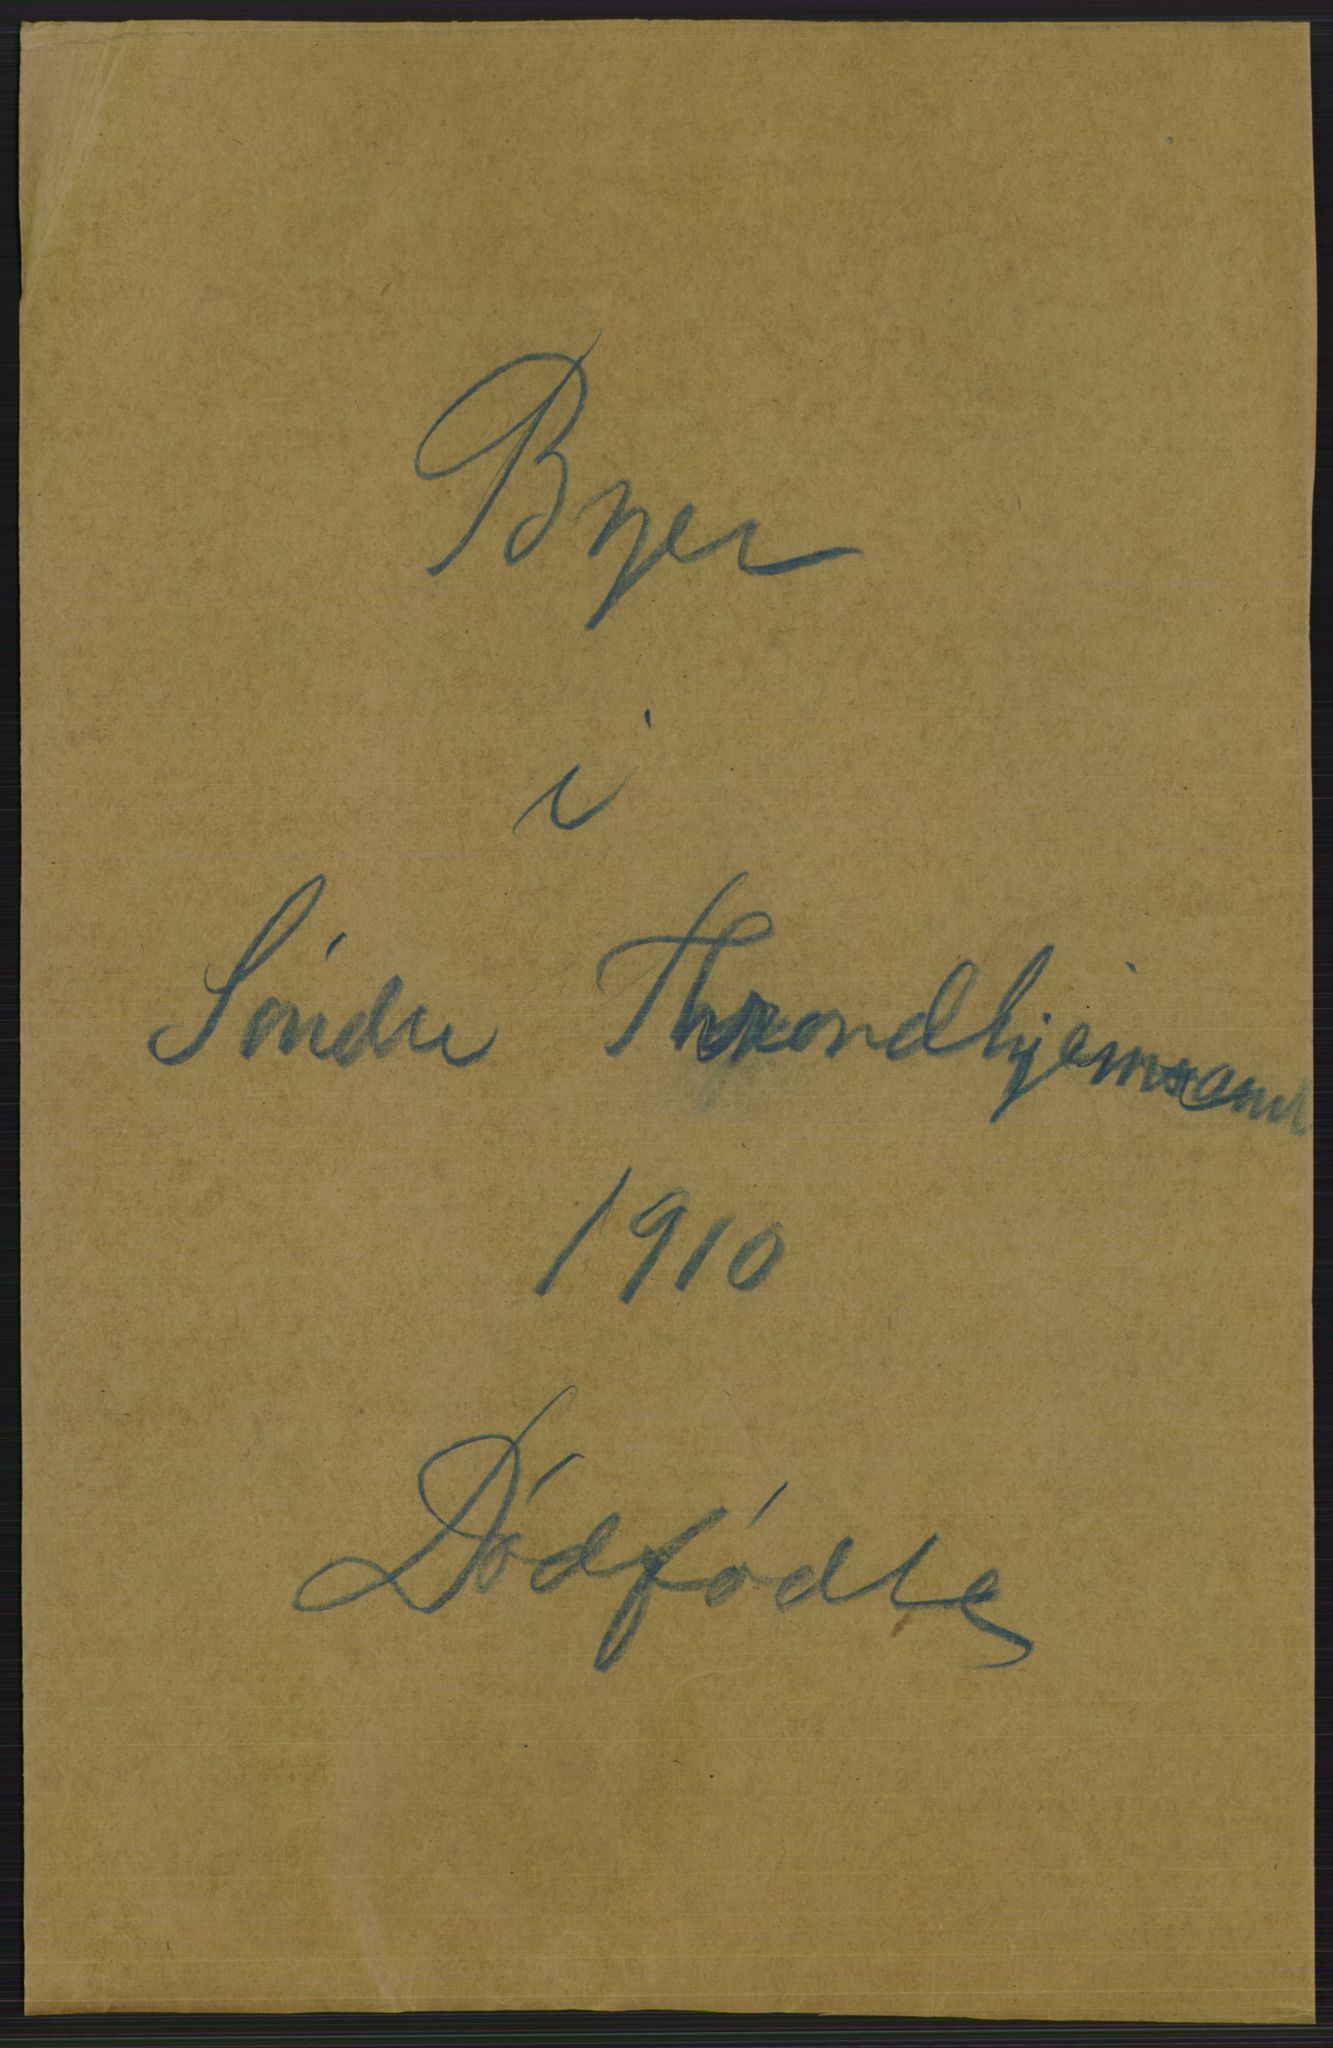 Byer
i
Søndre Throndhjemsamt
1910
Dødfødte